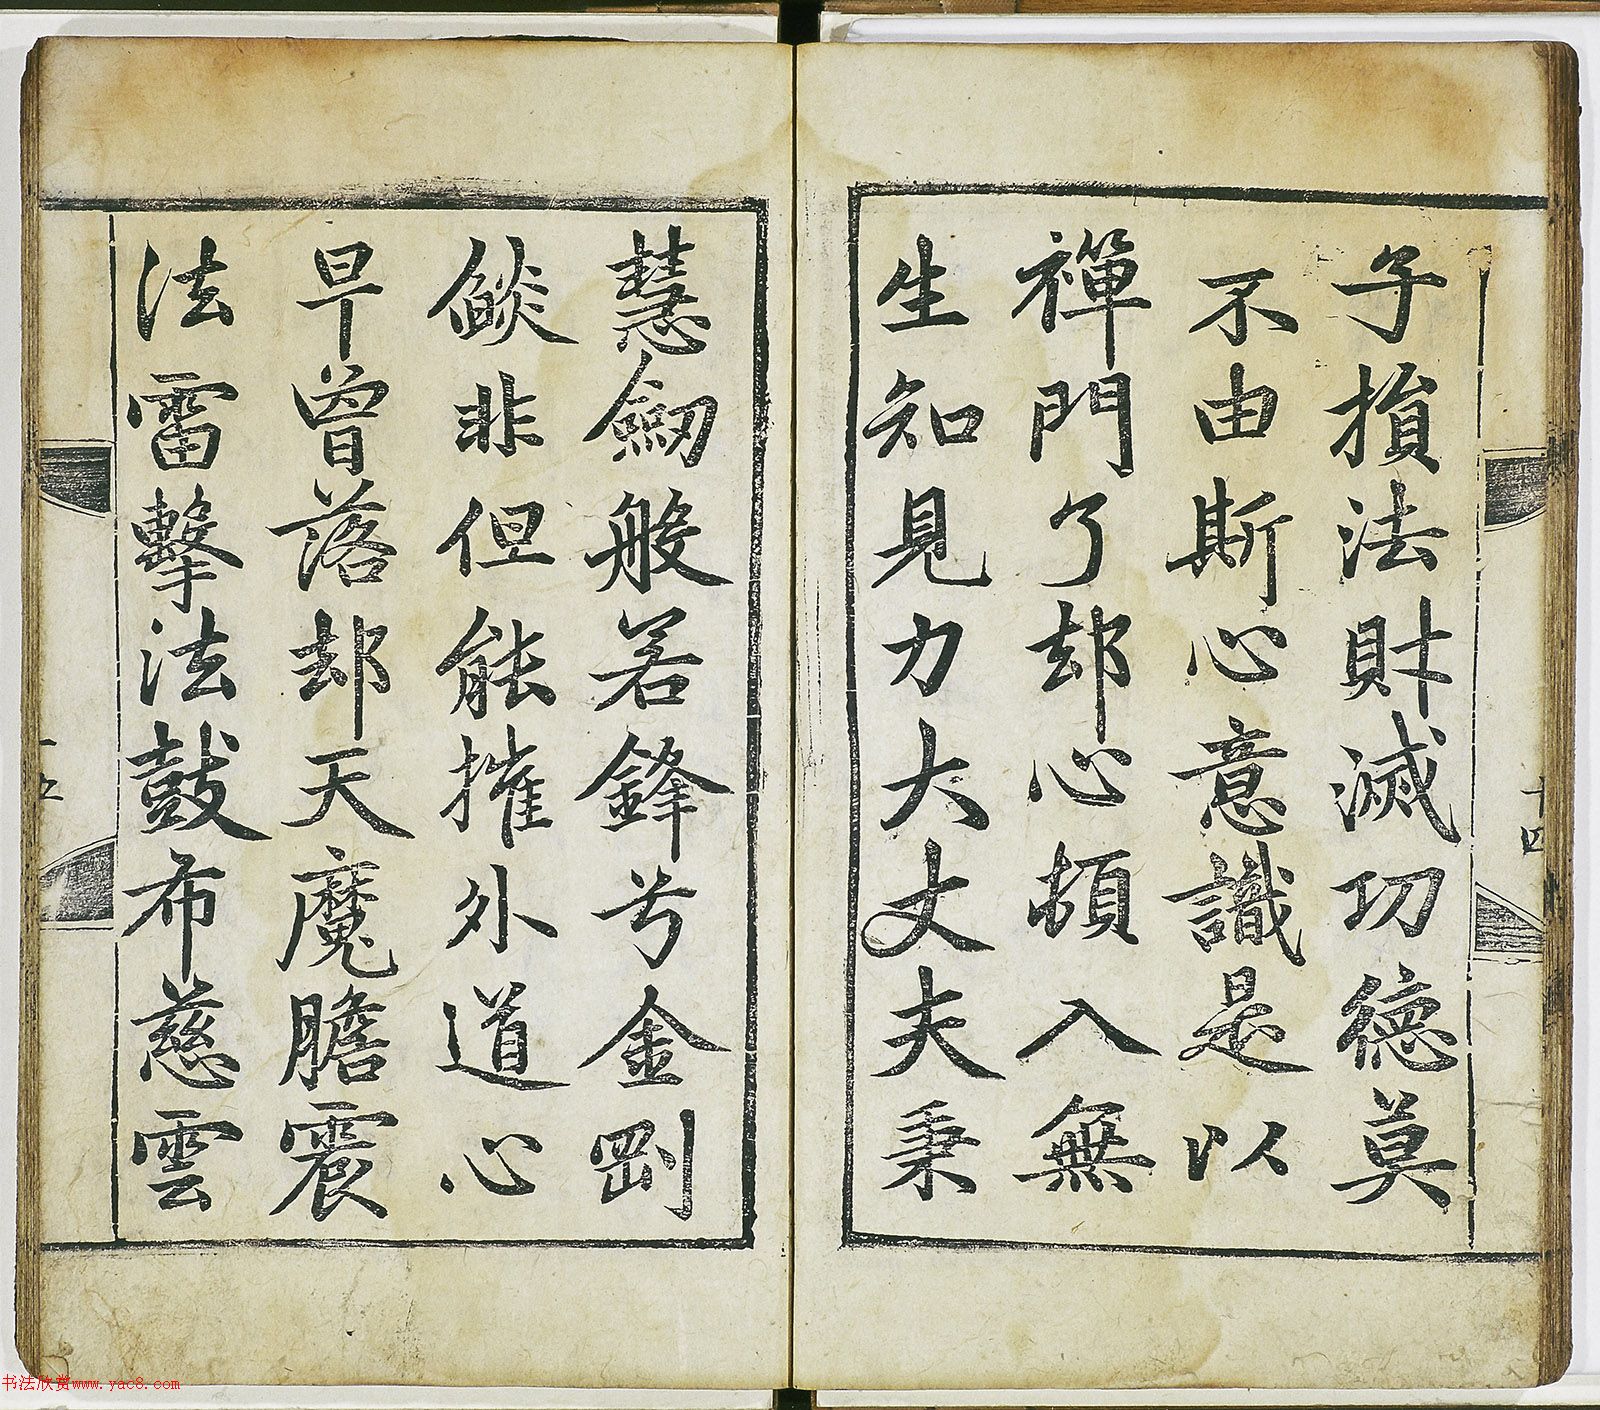 子損法財滅功德莫
不由斯心意識是以
禪門了却心頓入無
生知見力大丈夫秉
十四
慧劒般若鋒兮金剛
燄非但能摧外道心
早曾落却天魔膽震
法雷擊法鼓布慈雲
十五
书法欣赏www.yac8.com